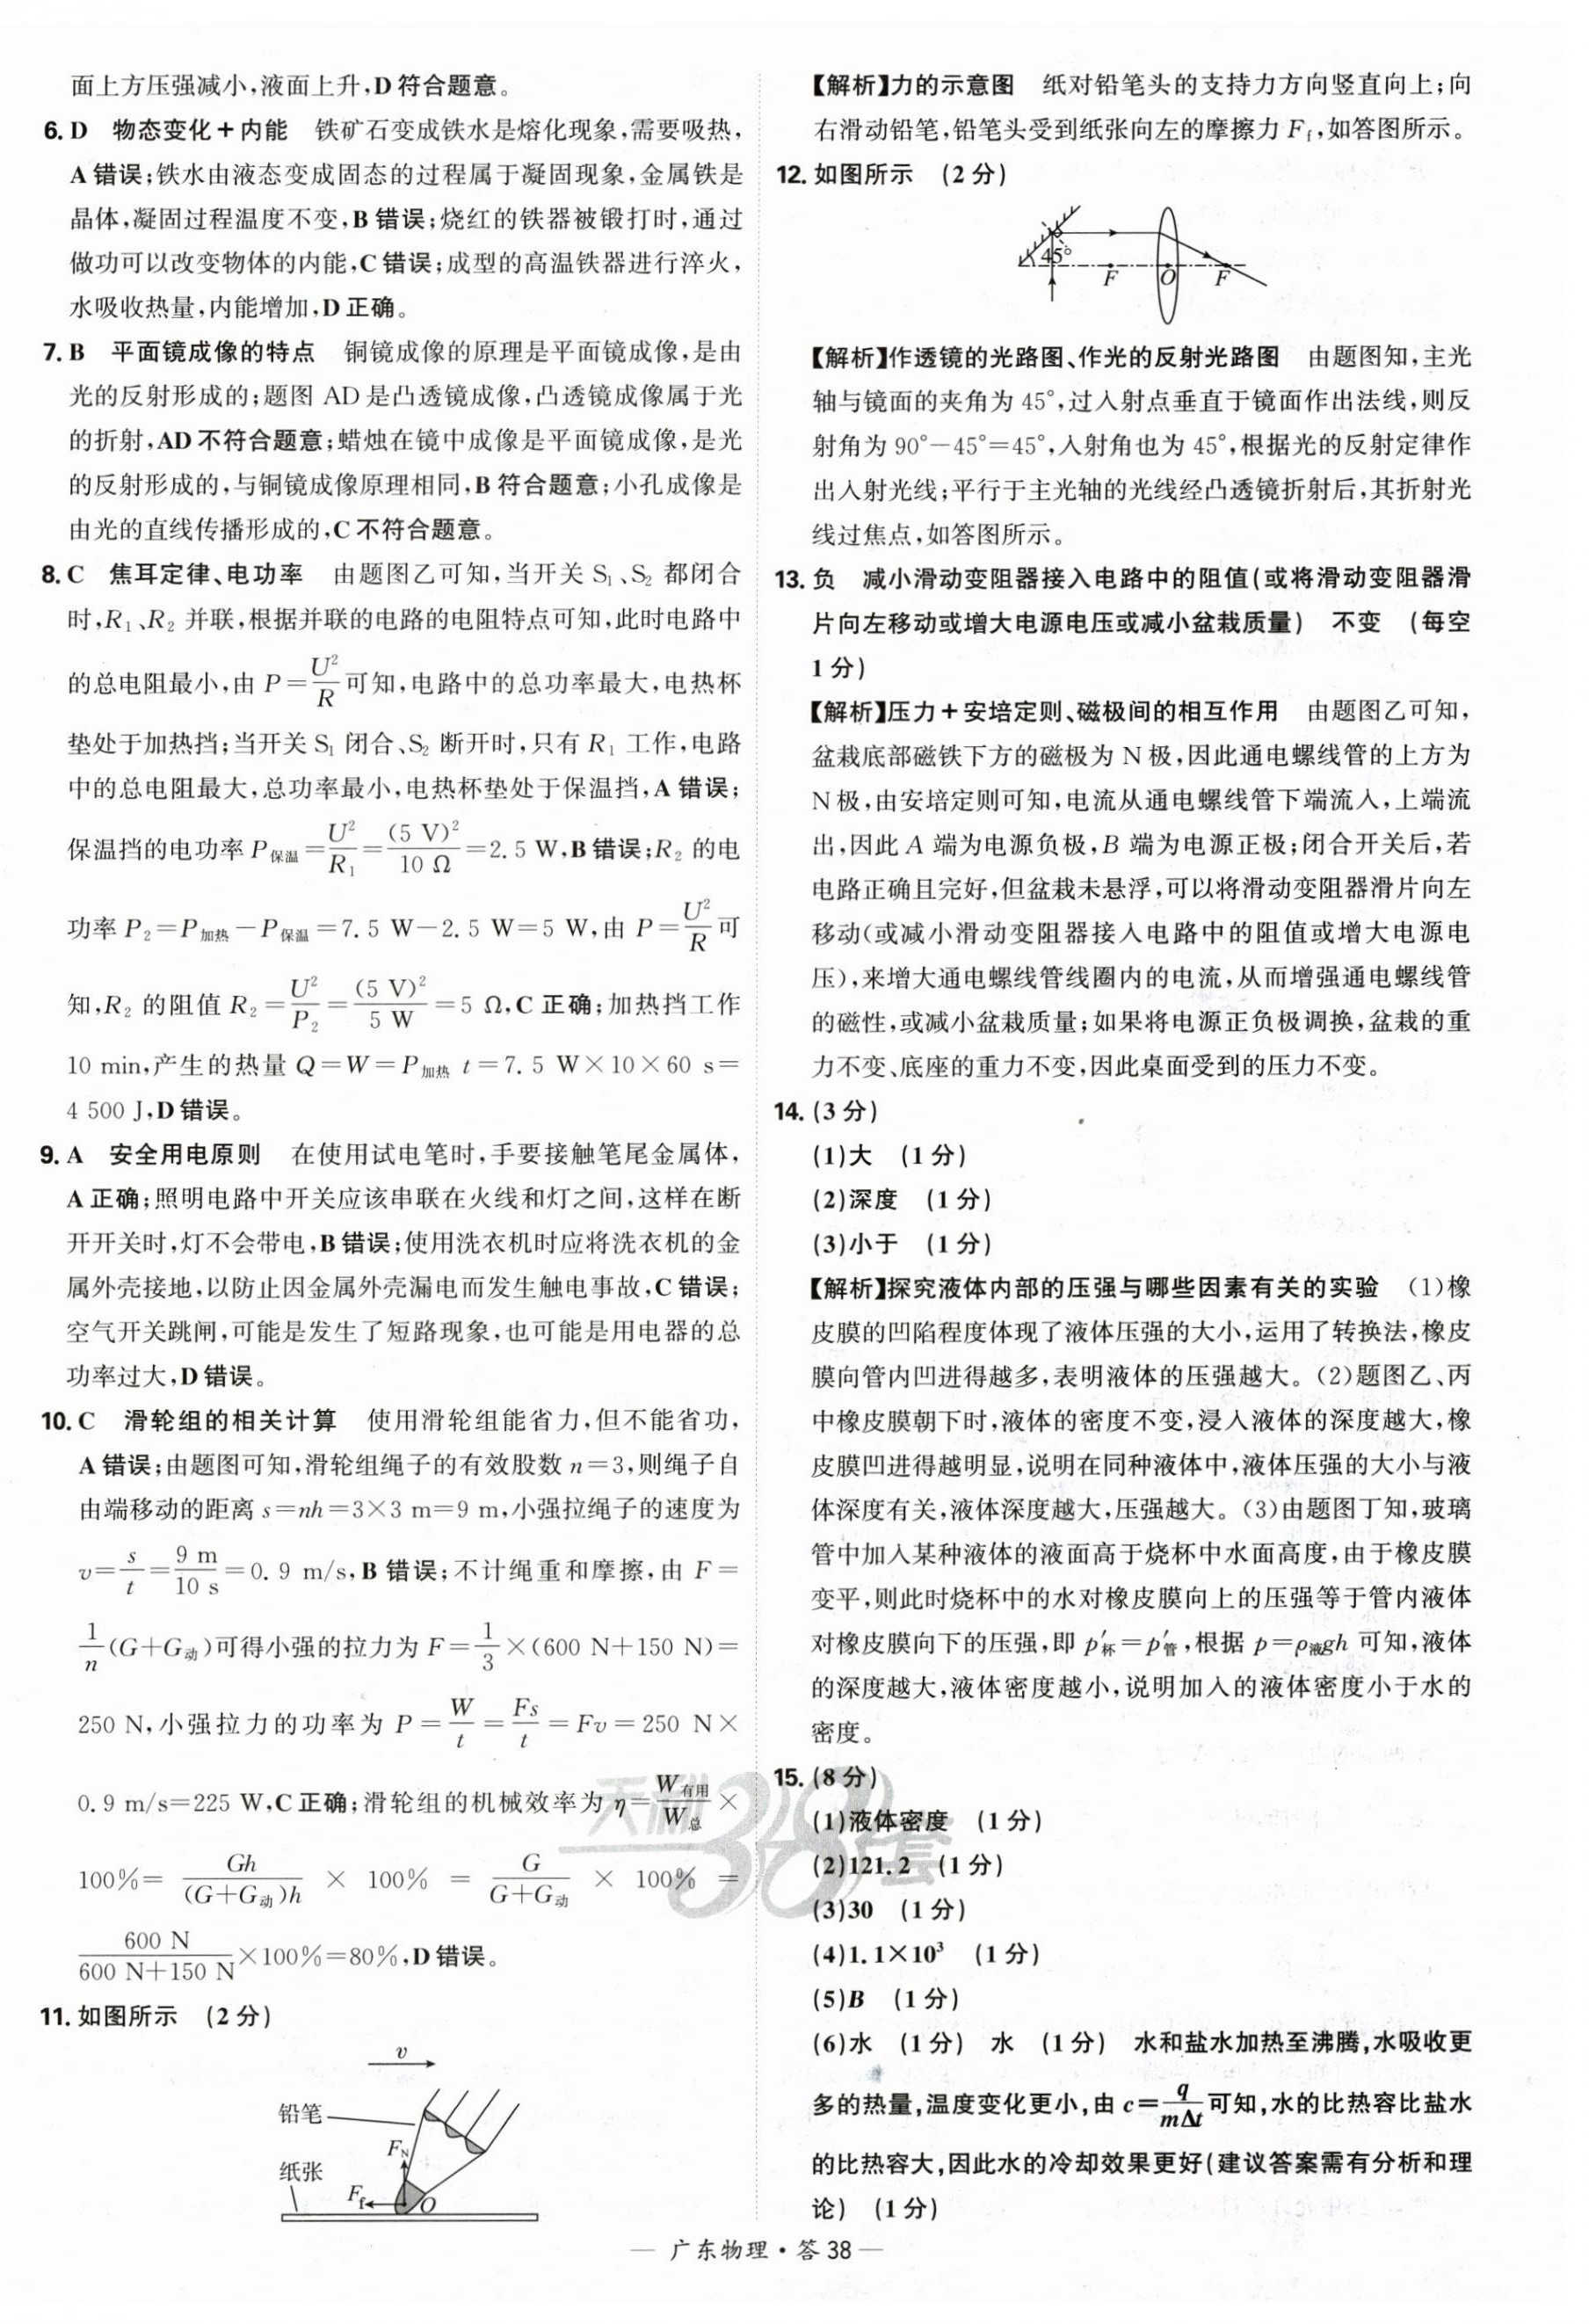 面上方压强减小,液面上升,D符合题意。
6. D 物态变化+内能 铁矿石变成铁水是熔化现象,需要吸热,
A错误;铁水由液态变成固态的过程属于凝固现象,金属铁是
晶体,凝固过程温度不变,B错误;烧红的铁器被锻打时,通过
做功可以改变物体的内能,C错误;成型的高温铁器进行淬火,
水吸收热量,内能增加,D正确。
7. B 平面镜成像的特点 铜镜成像的原理是平面镜成像,是由
光的反射形成的;题图 AD 是凸透镜成像,凸透镜成像属于光
的折射,AD不符合题意;蜡烛在镜中成像是平面镜成像,是光
的反射形成的,与铜镜成像原理相同,B符合题意;小孔成像是
由光的直线传播形成的,C不符合题意。
8. C 焦耳定律、电功率 由题图乙可知,当开关 S₁、S₂ 都闭合
时,R₁、R₂ 并联,根据并联的电路的电阻特点可知,此时电路中
的总电阻最小,由 P=U²/R可知,电路中的总功率最大,电热杯
垫处于加热挡;当开关 S₁ 闭合、S₂ 断开时,只有 R₁ 工作,电路
中的总电阻最大,总功率最小,电热杯垫处于保温挡,A错误;
保温挡的电功率 P保温=U²/R₁=(5 V)²/10 Ω=2.5 W,B错误;R₂ 的电
功率 P₂=P加热-P保温=7.5 W-2.5 W=5 W,由 P=U²/R可
知,R₂ 的阻值 R₂=U²/P₂=(5 V)²/5 W=5 Ω,C正确;加热挡工作
10 min,产生的热量 Q=W=P加热 t=7.5 W×10×60 s=
4 500 J,D错误。
9. A 安全用电原则 在使用试电笔时,手要接触笔尾金属体,
A正确;照明电路中开关应该串联在火线和灯之间,这样在断
开开关时,灯不会带电,B错误;使用洗衣机时应将洗衣机的金
属外壳接地,以防止因金属外壳漏电而发生触电事故,C错误;
空气开关跳闸,可能是发生了短路现象,也可能是用电器的总
功率过大,D错误。
10. C 滑轮组的相关计算 使用滑轮组能省力,但不能省功,
A错误;由题图可知,滑轮组绳子的有效股数 n=3,则绳子自
由端移动的距离 s=nh=3×3 m=9 m,小强拉绳子的速度为
v=s/t=9 m/10 s=0.9 m/s,B错误;不计绳重和摩擦,由 F=
1/n(G+G动)可得小强的拉力为 F=1/3×(600 N+150 N)=
250 N,小强拉力的功率为 P=W/t=Fs/t=Fv=250 N×
0.9 m/s=225 W,C正确;滑轮组的机械效率为 η=W有用/W总×
100%=Gh/(G+G动)h×100%=G/G+G动×100%=
600 N/600 N+150 N×100%=80%,D错误。
11. 如图所示 (2分)
v
铅笔
FN
纸张
Ff
O
【解析】力的示意图 纸对铅笔头的支持力方向竖直向上;向
右滑动铅笔,铅笔头受到纸张向左的摩擦力 Ff,如答图所示。
12. 如图所示 (2分)
45°
F O F
【解析】作透镜的光路图、作光的反射光路图 由题图知,主光
轴与镜面的夹角为 45°,过入射点垂直于镜面作出法线,则反
射角为 90°-45°=45°,入射角也为 45°,根据光的反射定律作
出入射光线;平行于主光轴的光线经凸透镜折射后,其折射光
线过焦点,如答图所示。
13. 负 减小滑动变阻器接入电路中的阻值(或将滑动变阻器滑
片向左移动或增大电源电压或减小盆栽质量) 不变 (每空
1分)
【解析】压力+安培定则、磁极间的相互作用 由题图乙可知,
盆栽底部磁铁下方的磁极为 N 极,因此通电螺线管的上方为
N极,由安培定则可知,电流从通电螺线管下端流入,上端流
出,因此 A 端为电源负极,B 端为电源正极;闭合开关后,若
电路正确且完好,但盆栽未悬浮,可以将滑动变阻器滑片向左
移动(或减小滑动变阻器接入电路中的阻值或增大电源电
压),来增大通电螺线管线圈内的电流,从而增强通电螺线管
的磁性,或减小盆栽质量;如果将电源正负极调换,盆栽的重
力不变、底座的重力不变,因此桌面受到的压力不变。
14. (3分)
(1)大 (1分)
(2)深度 (1分)
(3)小于 (1分)
【解析】探究液体内部的压强与哪些因素有关的实验 (1)橡
皮膜的凹陷程度体现了液体压强的大小,运用了转换法,橡皮
膜向管内凹进得越多,表明液体的压强越大。(2)题图乙、丙
中橡皮膜朝下时,液体的密度不变,浸入液体的深度越大,橡
皮膜凹进得越明显,说明在同种液体中,液体压强的大小与液
体深度有关,液体深度越大,压强越大。(3)由题图丁知,玻璃
管中加入某种液体的液面高于烧杯中水面高度,由于橡皮膜
变平,则此时烧杯中的水对橡皮膜向上的压强等于管内液体
对橡皮膜向下的压强,即 p′杯=p′管,根据 p=ρ液gh 可知,液体
的深度越大,液体密度越小,说明加入的液体密度小于水的
密度。
15. (8分)
(1)液体密度 (1分)
(2)121.2 (1分)
(3)30 (1分)
(4)1.1×10³ (1分)
(5)B (1分)
(6)水 (1分) 水 (1分) 水和盐水加热至沸腾,水吸收更
多的热量,温度变化更小,由 c=q/mΔt可知,水的比热容比盐水
的比热容大,因此水的冷却效果更好(建议答案需有分析和理
论) (1分)
天利38套
— 广东物理·答 38 —